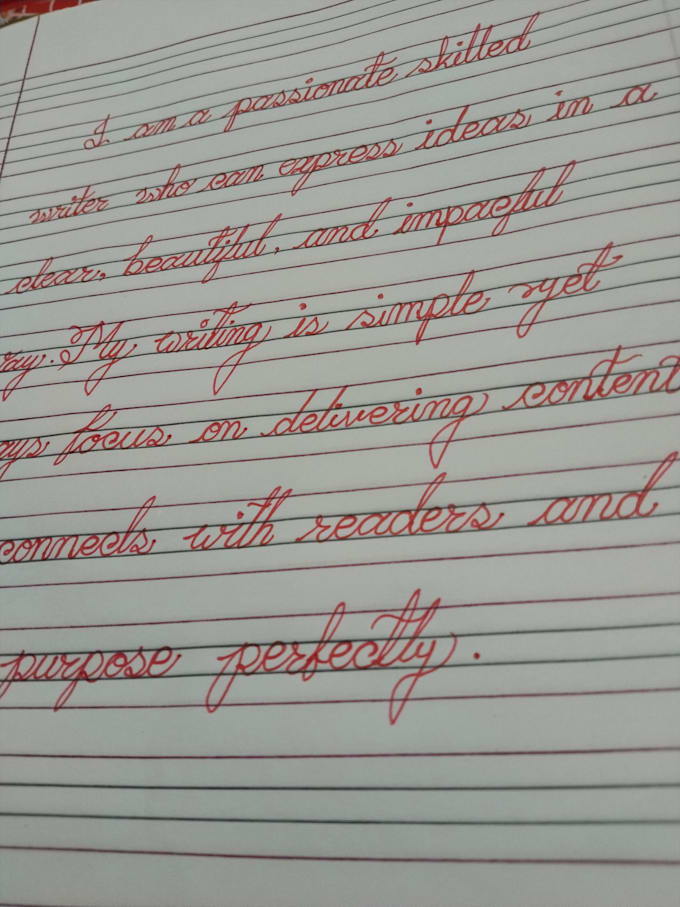 I am a passionate skilled
writer who can express ideas in a
clear, beautiful, and impactful
way. My writing is simple yet
ays focus on delivering content
connects with readers and
purpose perfectly.